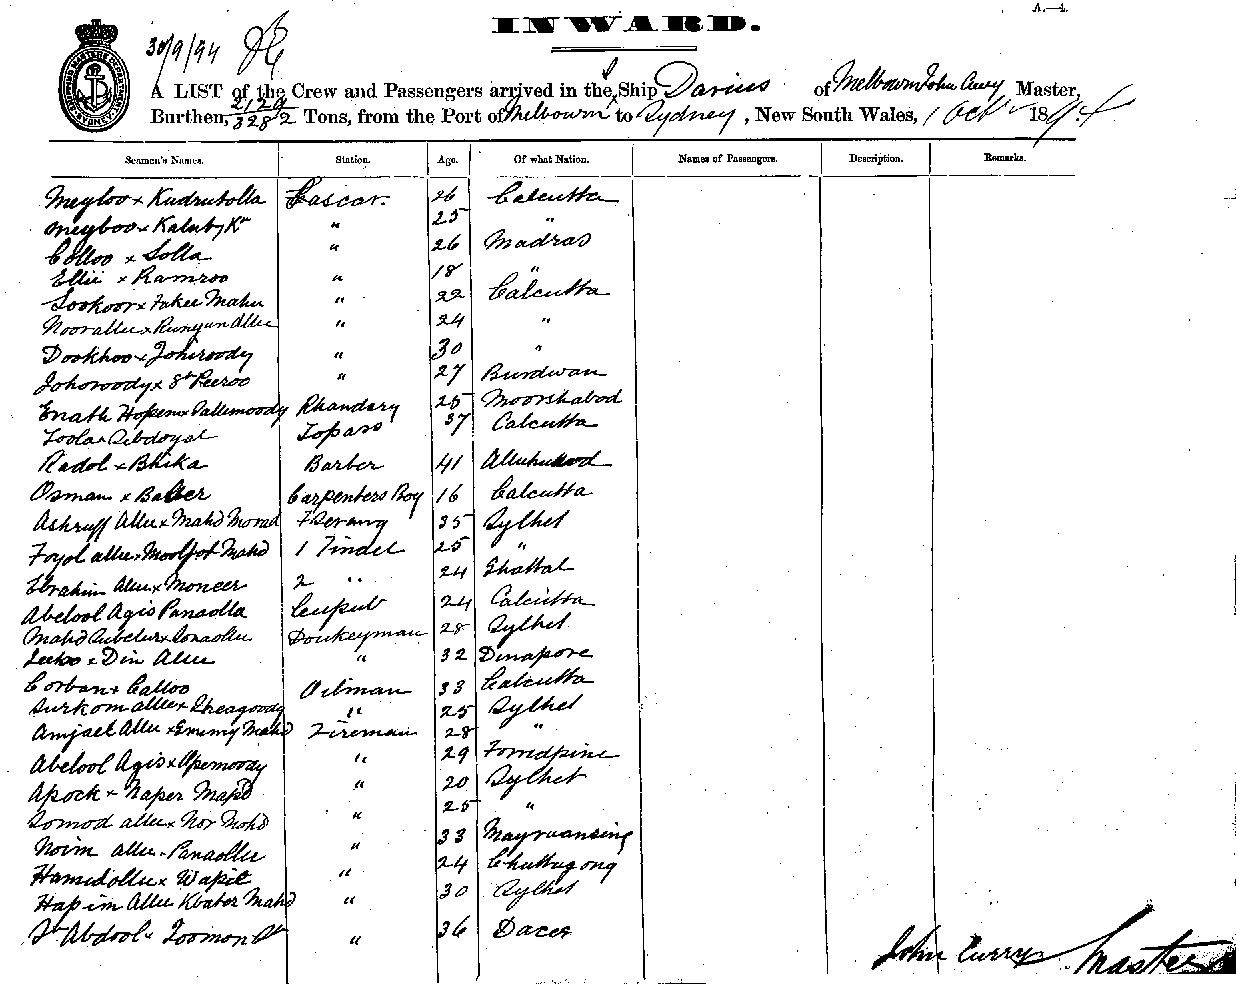 A.—4.
INWARD.
30/9/94
A LIST of the Crew and Passengers arrived in the Ship Darius of Melbourne John Curry Master,
Burthen, 2129/3282 Tons, from the Port of Melbourne to Sydney, New South Wales, 1 Oct 1894
Seamen's Names. Station. Age. Of what Nation. Names of Passengers. Description. Remarks.
Meyloo x Kudrutolla Lascar. 26 Calcutta
Meyboo x Kaluby Kn " 25 "
Colloo x Solla " 26 Madras
Ellie x Ramroo " 18 "
Sookoor x Faker Mahu " 22 Calcutta
Noorallee x Runyunallee " 24 "
Dookhoo x Johiroody " 30 "
Johoroody x Sk Peeroo " 27 Burdwan
Enath Hopen x Sallimoody Bhandary 25 Moorshabod
Toola x Sibdoyal Topass 37 Calcutta
Radol x Bhika Barber 41
Osman x Carpenters Boy 16 Calcutta
Ashruff Allee x Mahd Morad Serang 35 Sylhet
Foyol allee x Mahd 1 Tindel 25 "
Ebrahim Allee x Moneer 2 " 24
Abdool Agis Panaolla 24 Calcutta
Mahd x Sonaollee Donkeyman 28 Sylhet
x Din Allee " 32 Dinapore
Corban x Calloo Oilman 33 Calcutta
Surkom allee x " 25 Sylhet
Amjad Allee x Mahd Fireman 28 "
Abdool Agis x " 29
Apock x Naper Mapd " 20 Sylhet
Somod allee x Nor Mohd " 25 "
Noim allee x Panaollee " 33 Mayruansing
Hamidollee x Wapil " 24 Chuttugong
Hapim Allee Kbater Mahd " 30 Sylhet
Sk Abdool x Toomon " 36 Dacca
John Curry Master